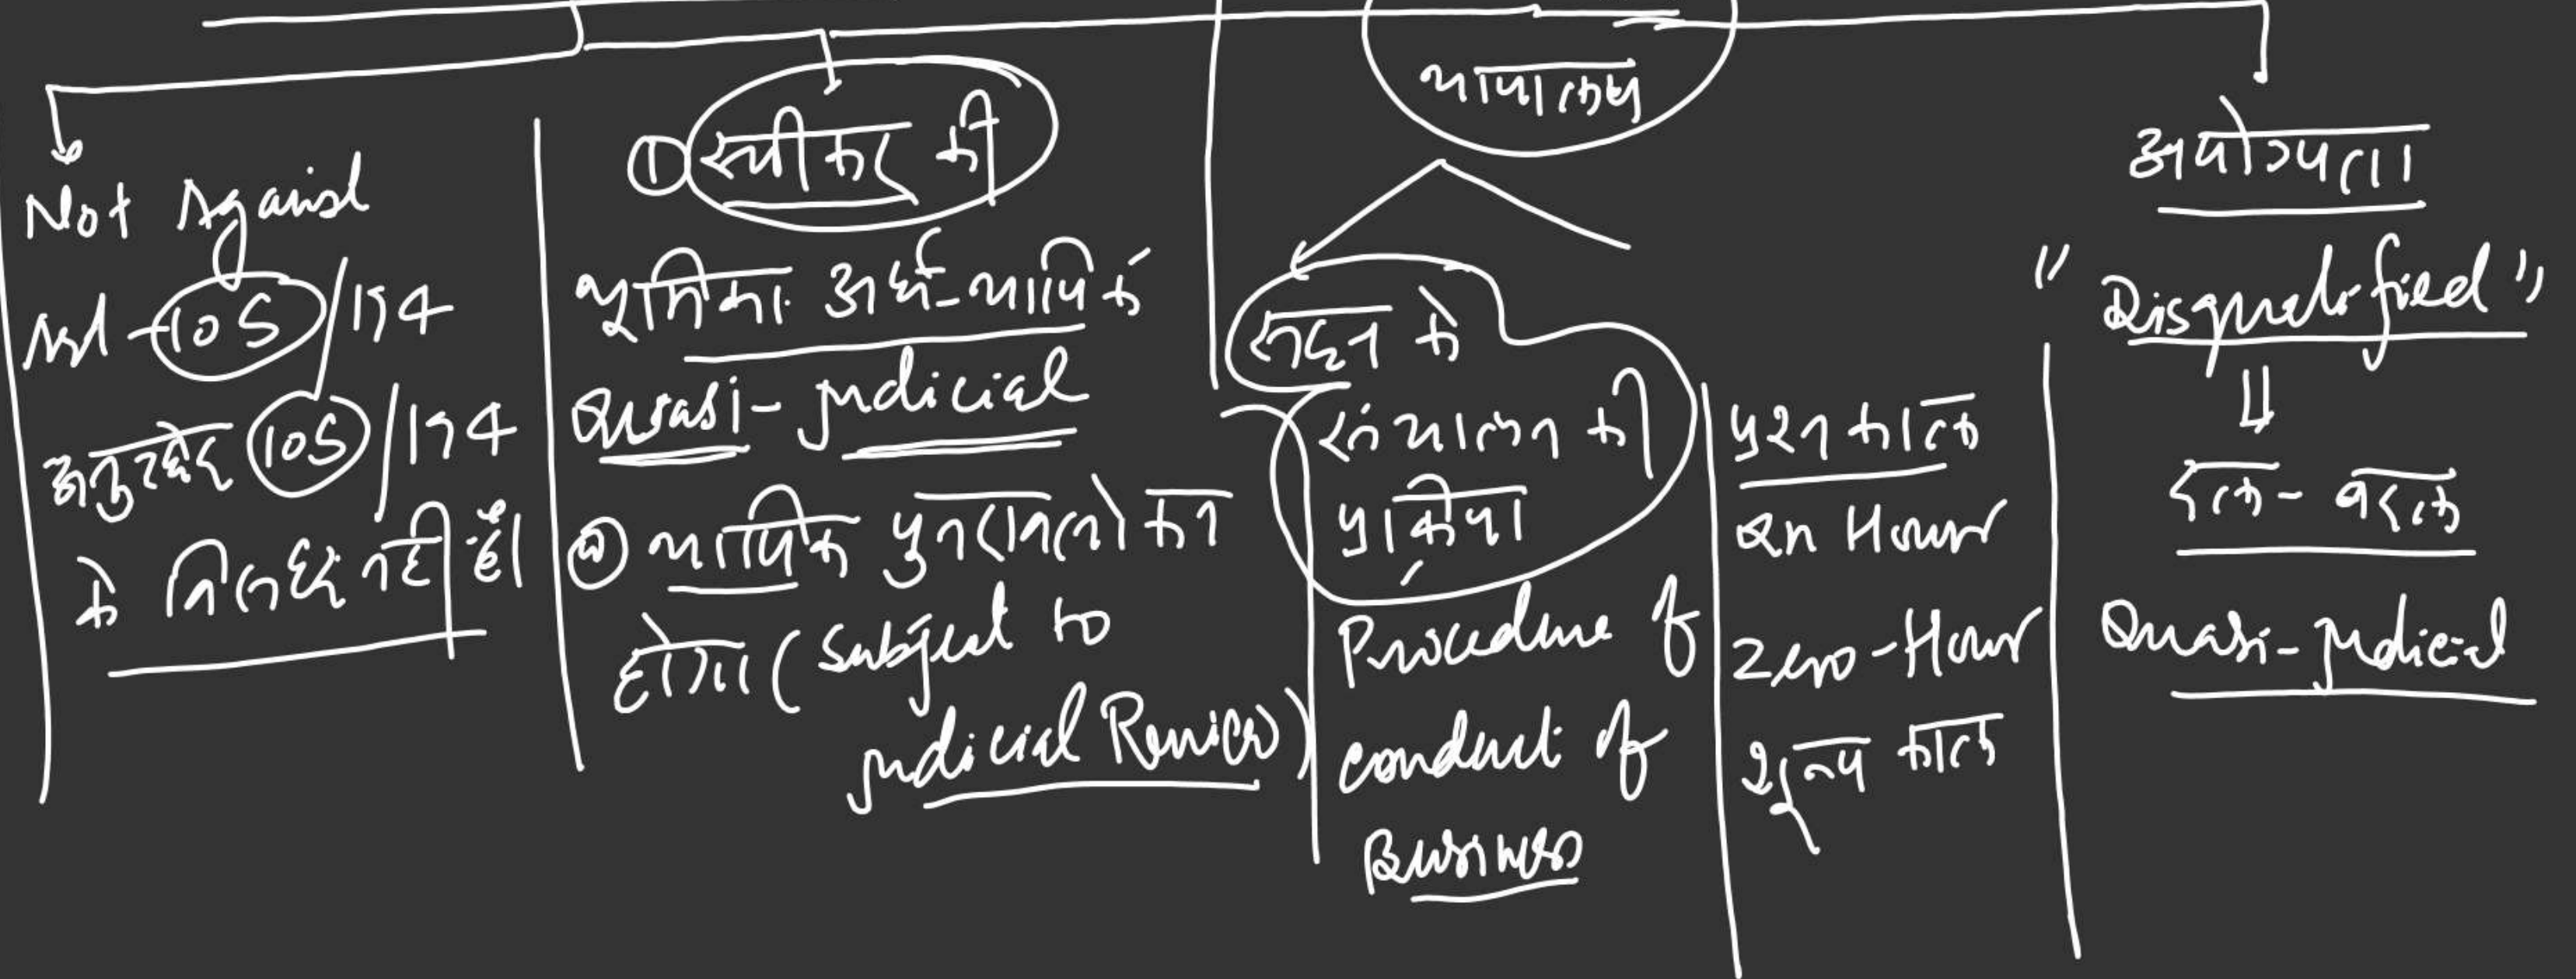 Not Against
Art - 105/194
अनुच्छेद 105/194
के विरुद्ध नहीं है।
① स्पीकर की
भूमिका अर्ध-न्यायिक
Quasi-judicial
② न्यायिक पुनरावलोकन
होगा (Subject to
judicial Review)
न्यायालय
सदन के
संचालन की
प्रक्रिया
Procedure of
conduct of
Business
प्रश्न काल
Qn Hour
Zero-Hour
शून्य काल
अयोग्यता
"Disqualified"
दल-बदल
Quasi-judicial